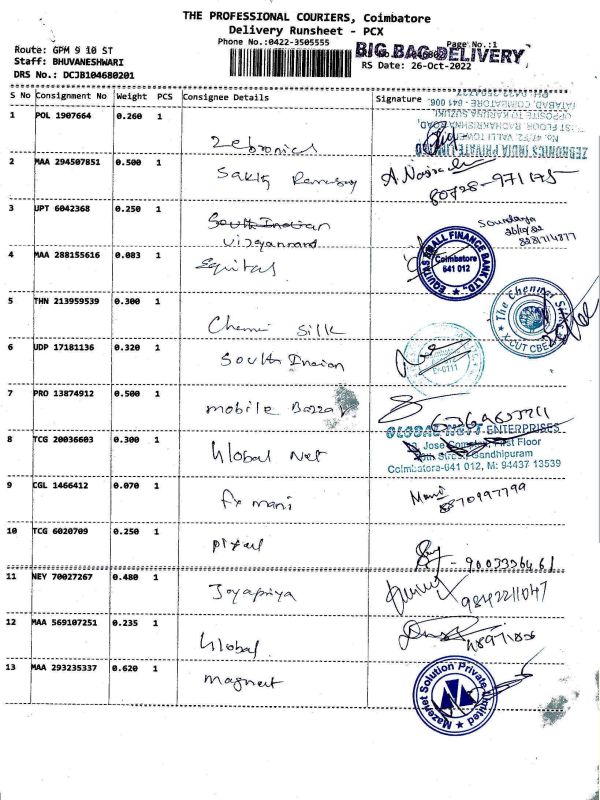 THE PROFESSIONAL COURIERS, Coimbatore
Delivery Runsheet - PCX
Phone No.:0422-3505555
Page No.:1
BIG BAG DELIVERY
Route: GPM 9 10 ST
Staff: BHUVANESHWARI
RS Date: 26-Oct-2022
DRS No.: DCJB104680201
S No Consignment No Weight PCS Consignee Details Signature
ZEBRONICS INDIA PRIVATE LIMITED
1 POL 1907664 0.260 1 Zebronics
2 MAA 294507851 0.500 1 Sakthy
3 UPT 6042368 0.250 1 South Indian
Vijayanand
Soundarya
4 MAA 288155616 0.083 1 Equitas
EQUITAS SMALL FINANCE BANK LTD.
Coimbatore
641 012
5 THN 213959539 0.300 1 Chenni Silk
The Chennai Silks
X-CUT CBE
6 UDP 17181136 0.320 1 South Indian
7 PRO 13874912 0.500 1 mobile Bazza
8 TCG 20036603 0.300 1 Global Net
GLOBAL NETT ENTERPRISES
Jose Complex, First Floor
Street, Gandhipuram
Coimbatore-641 012, M: 94437 13539
9 CGL 1466412 0.070 1 fx mani
Mani
8870997799
10 TCG 6020709 0.250 1 pixel
9003356461
11 NEY 70027267 0.480 1 Joyapriya
9842211047
12 MAA 569107251 0.235 1 Global
13 MAA 293235337 0.620 1 magnet
Mazenet Solution Private Limited